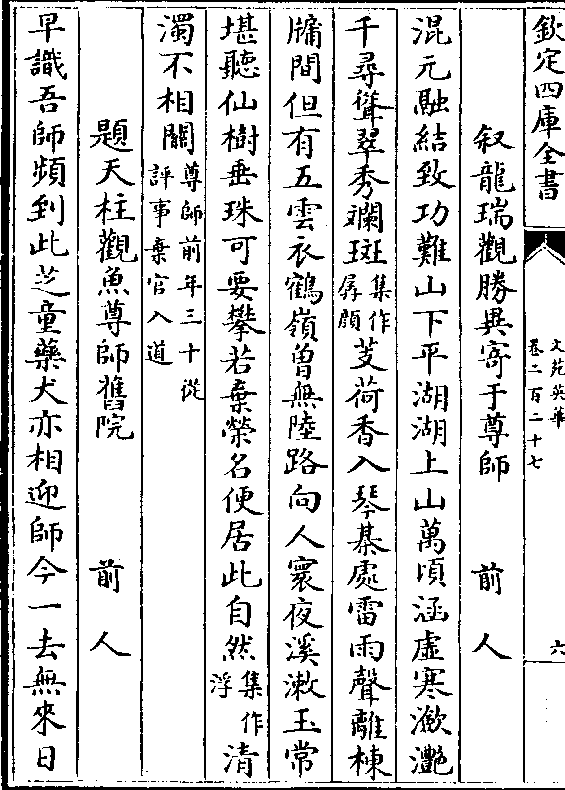 欽定四庫全書
文苑英華
卷二百二十七
六
叙龍瑞觀勝異寄于尊師 前人
混元融結致功難山下平湖湖上山萬頃涵虛寒瀲灩
千尋聳翠秀斕斑集作孱顔芰荷香入琴棊處雷雨聲離棟
牖間但有五雲衣鶴嶺曾無陸路向人寰夜溪漱玉常
堪聽仙樹垂珠可要攀若棄榮名便居此自然集作浮清
濁不相關尊師前年三十從評事棄官入道
題天柱觀魚尊師舊院 前人
早識吾師頻到此芝童藥犬亦相迎師今一去無來日